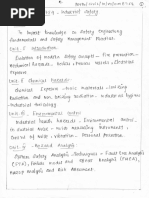 Industrial Safety
To impart knowledge on Safety Engineering
fundamentals and Safety Management Practices.
Evolution of modern safety concepts - Fire prevention -
Mechanical Hazards - Boilers, Pressure Vessels, Electrical
Exposure.
Chemical Hazards
Chemical Exposure - Toxic materials - Ionizing
Radiation and Non-ionizing Radiation - Industrial Hygiene
and Industrial Toxicology.
Environmental Control
Industrial Health Hazards - Environmental Control
Industrial Noise - Noise measuring instruments,
Control of Noise, Vibration, - Personal Protection.
Hazard Analysis
System Safety Analysis - Techniques - Fault Tree Analysis
(FTA), Failure modes and effect Analysis (FMEA),
HAZOP analysis and Risk Assessment.